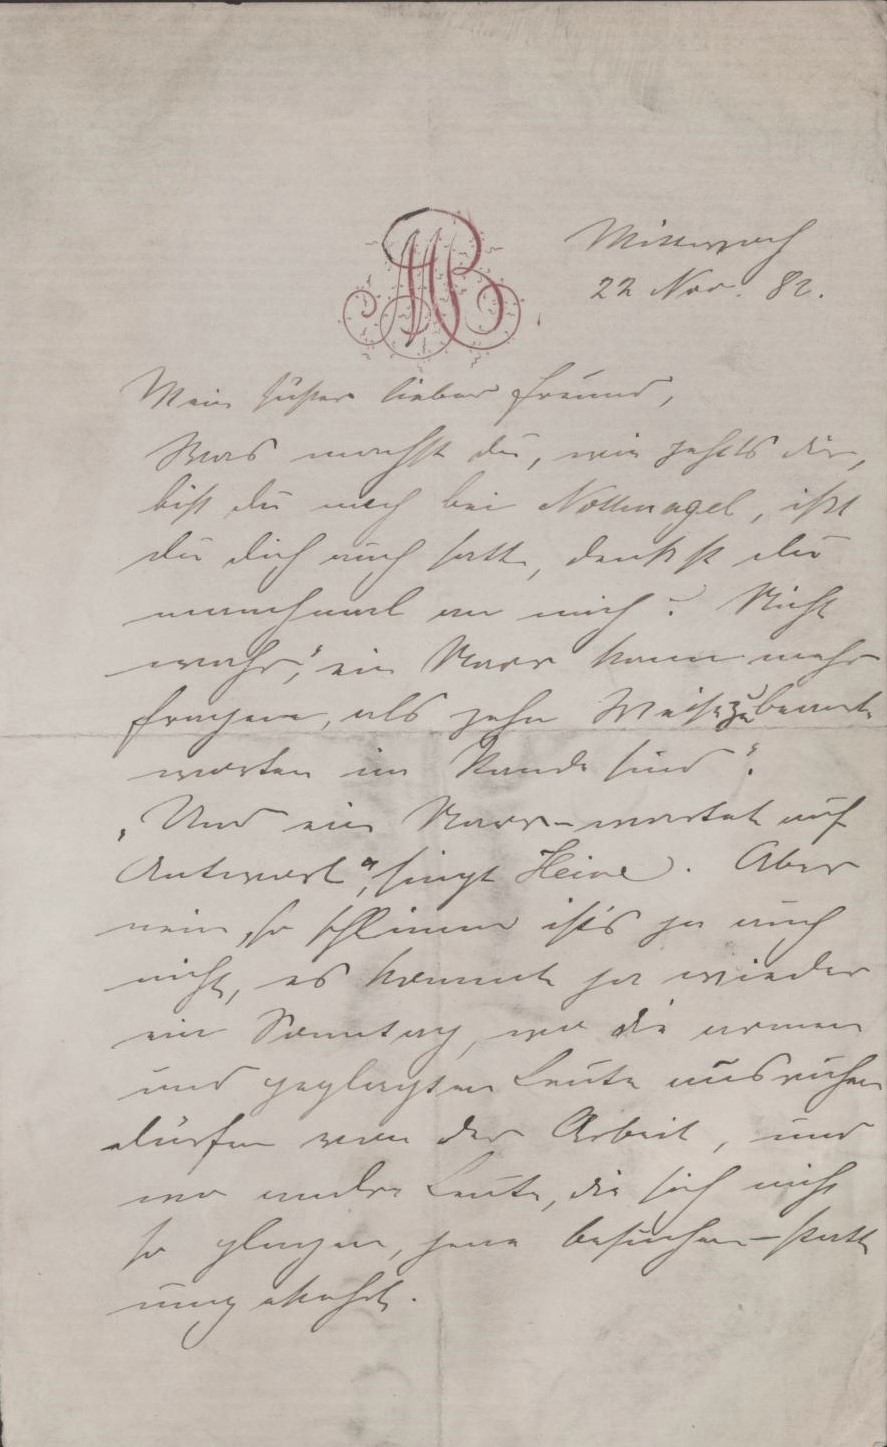 MB
Mittwoch
22 Nov. 82.
Mein süßer lieber Freund,
Was machst du, wie gehts dir,
bist du noch bei Nothnagel, ißt
du dich auch satt, denkst du
manchmal an mich? Nicht
wahr, „ein Narr kann mehr
fragen, als zehn Weise zu beant
worten im Stande sind“.
„Und ein Narr – wartet auf
Antwort“, singt Heine. Aber
nein, so schlimm ist's ja auch
nicht, es kommt ja wieder
ein Sonntag, wo die armen
und geplagten Leute ausruhen
dürfen von der Arbeit, und
wo andre Leute, die sich nicht
so plagen, jene besuchen – statt
umgekehrt.